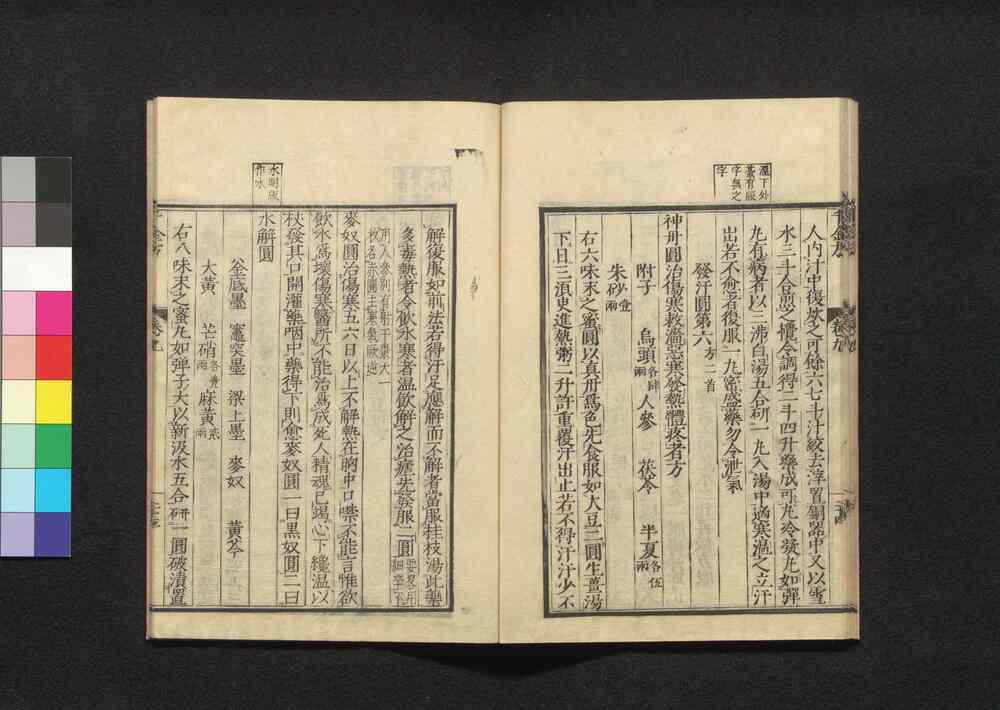 溫下外
臺有服
字無之
字
人內汁中復炊之可餘六七斗汁絞去滓置銅器中又以雪
水三斗合煎之攪令調得二斗四升藥成可丸冷凝丸如彈
丸有病者以三沸白湯五合研一丸入湯中適寒溫服之立汗
出若不愈者復服一丸密盛藥勿令泄氣
發汗圓第六 方二首
神丹圓治傷寒敕濇惡寒發熱體疼者方
附子 烏頭各肆兩 人參 茯苓 半夏各伍兩
朱砂壹兩
右六味末之蜜圓以真丹為色先食服如大豆二圓生薑湯
下日三須臾進熱粥二升許重覆汗出止若不得汗汗少不
解復服如前法若得汗足應解而不解者當服桂枝湯此藥
多毒熱者令飲水寒者溫飲解之治瘧先發服二圓要略用細辛不
用人參別有射干棗大一
枚名赤圓主寒氣厥逆
麥奴圓治傷寒五六日以上不解熱在胸中口噤不能言惟欲
飲水為壞傷寒醫所不能治為成死人精魂已竭心下纔溫以
杖發其口開灌藥咽中藥得下則愈麥奴圓一曰黑奴圓二曰
水解圓
水明版
作水
釜底墨 竈突墨 梁上墨 麥奴 黃芩
大黃 芒硝各壹兩 麻黃貳兩
右八味末之蜜丸如彈子大以新汲水五合研一圓破漬置
千金方
卷九